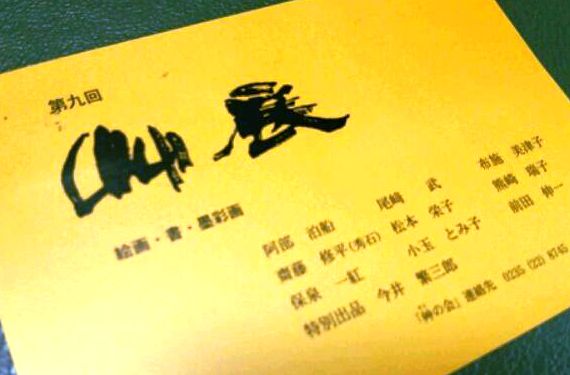 第九回
展
絵画・書・墨彩画
阿部 泊船 尾﨑 武 布施 美津子
齋藤 修平(秀石) 松本 栄子 熊崎 瑞子
保泉 一紅 小玉 とみ子 前田 伸一
特別出品 今井 繁三郎
「紳の会」連絡先 0235 (23) 8745